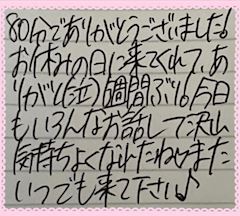 80分でありがとうございました!
お休みの日に来てくれて、あ
りがと(泣)1週間ぶり!!今日
もいろんなお話して沢山
気持ちよくなれたねせまた
いつでも来て下さい♪